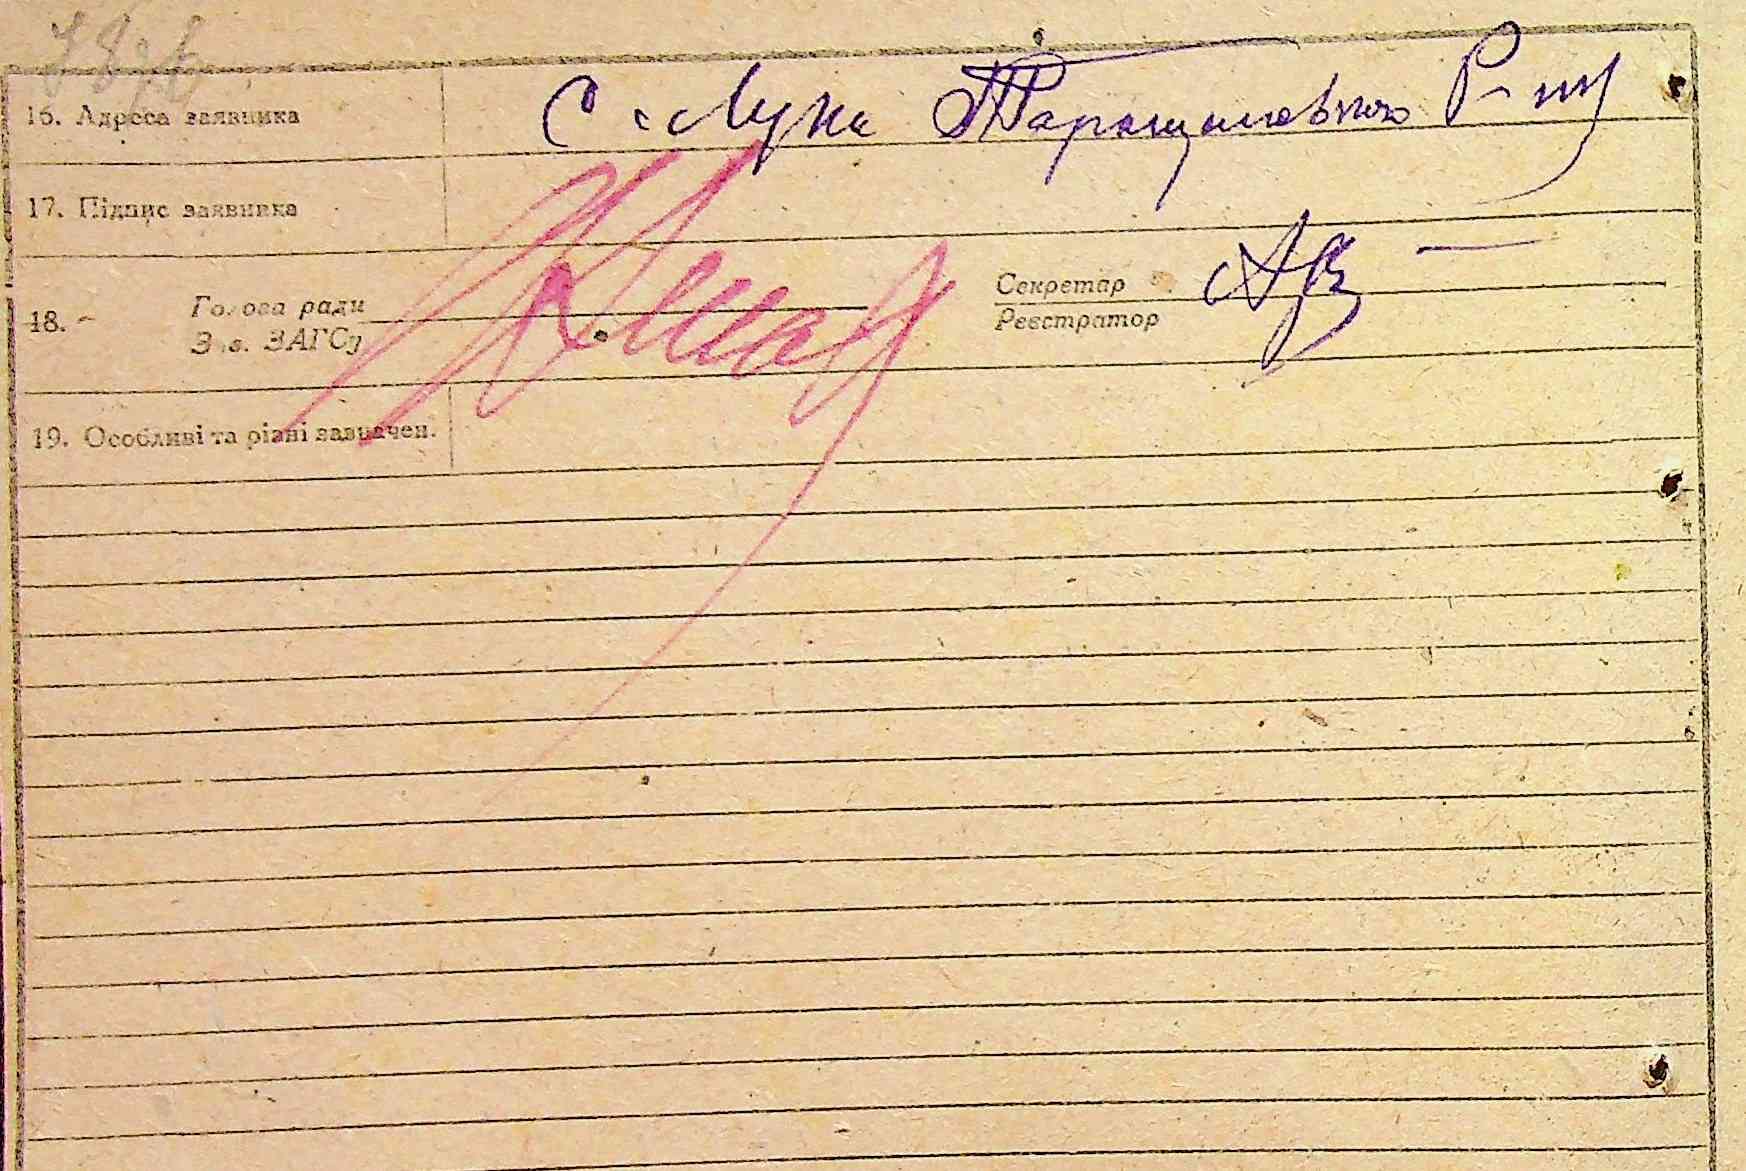 16. Адреса заявника С. Лука Таращанського Р-ну
17. Підпис заявника
18. Голова ради Секретар
Зав. ЗАГСу Реєстратор
19. Особливі та різні зазначен.